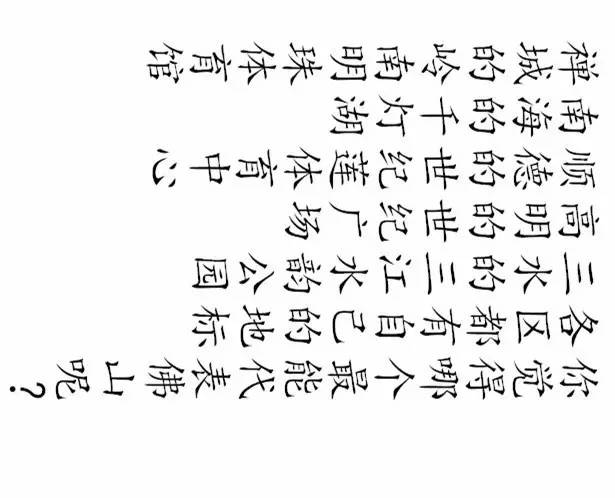 禅城的岭南明珠体育馆
南海的千灯湖
顺德的世纪莲体育中心
高明的世纪广场
三水的三江水韵公园
各区都有自己的地标
你觉得哪个最能代表佛山呢？